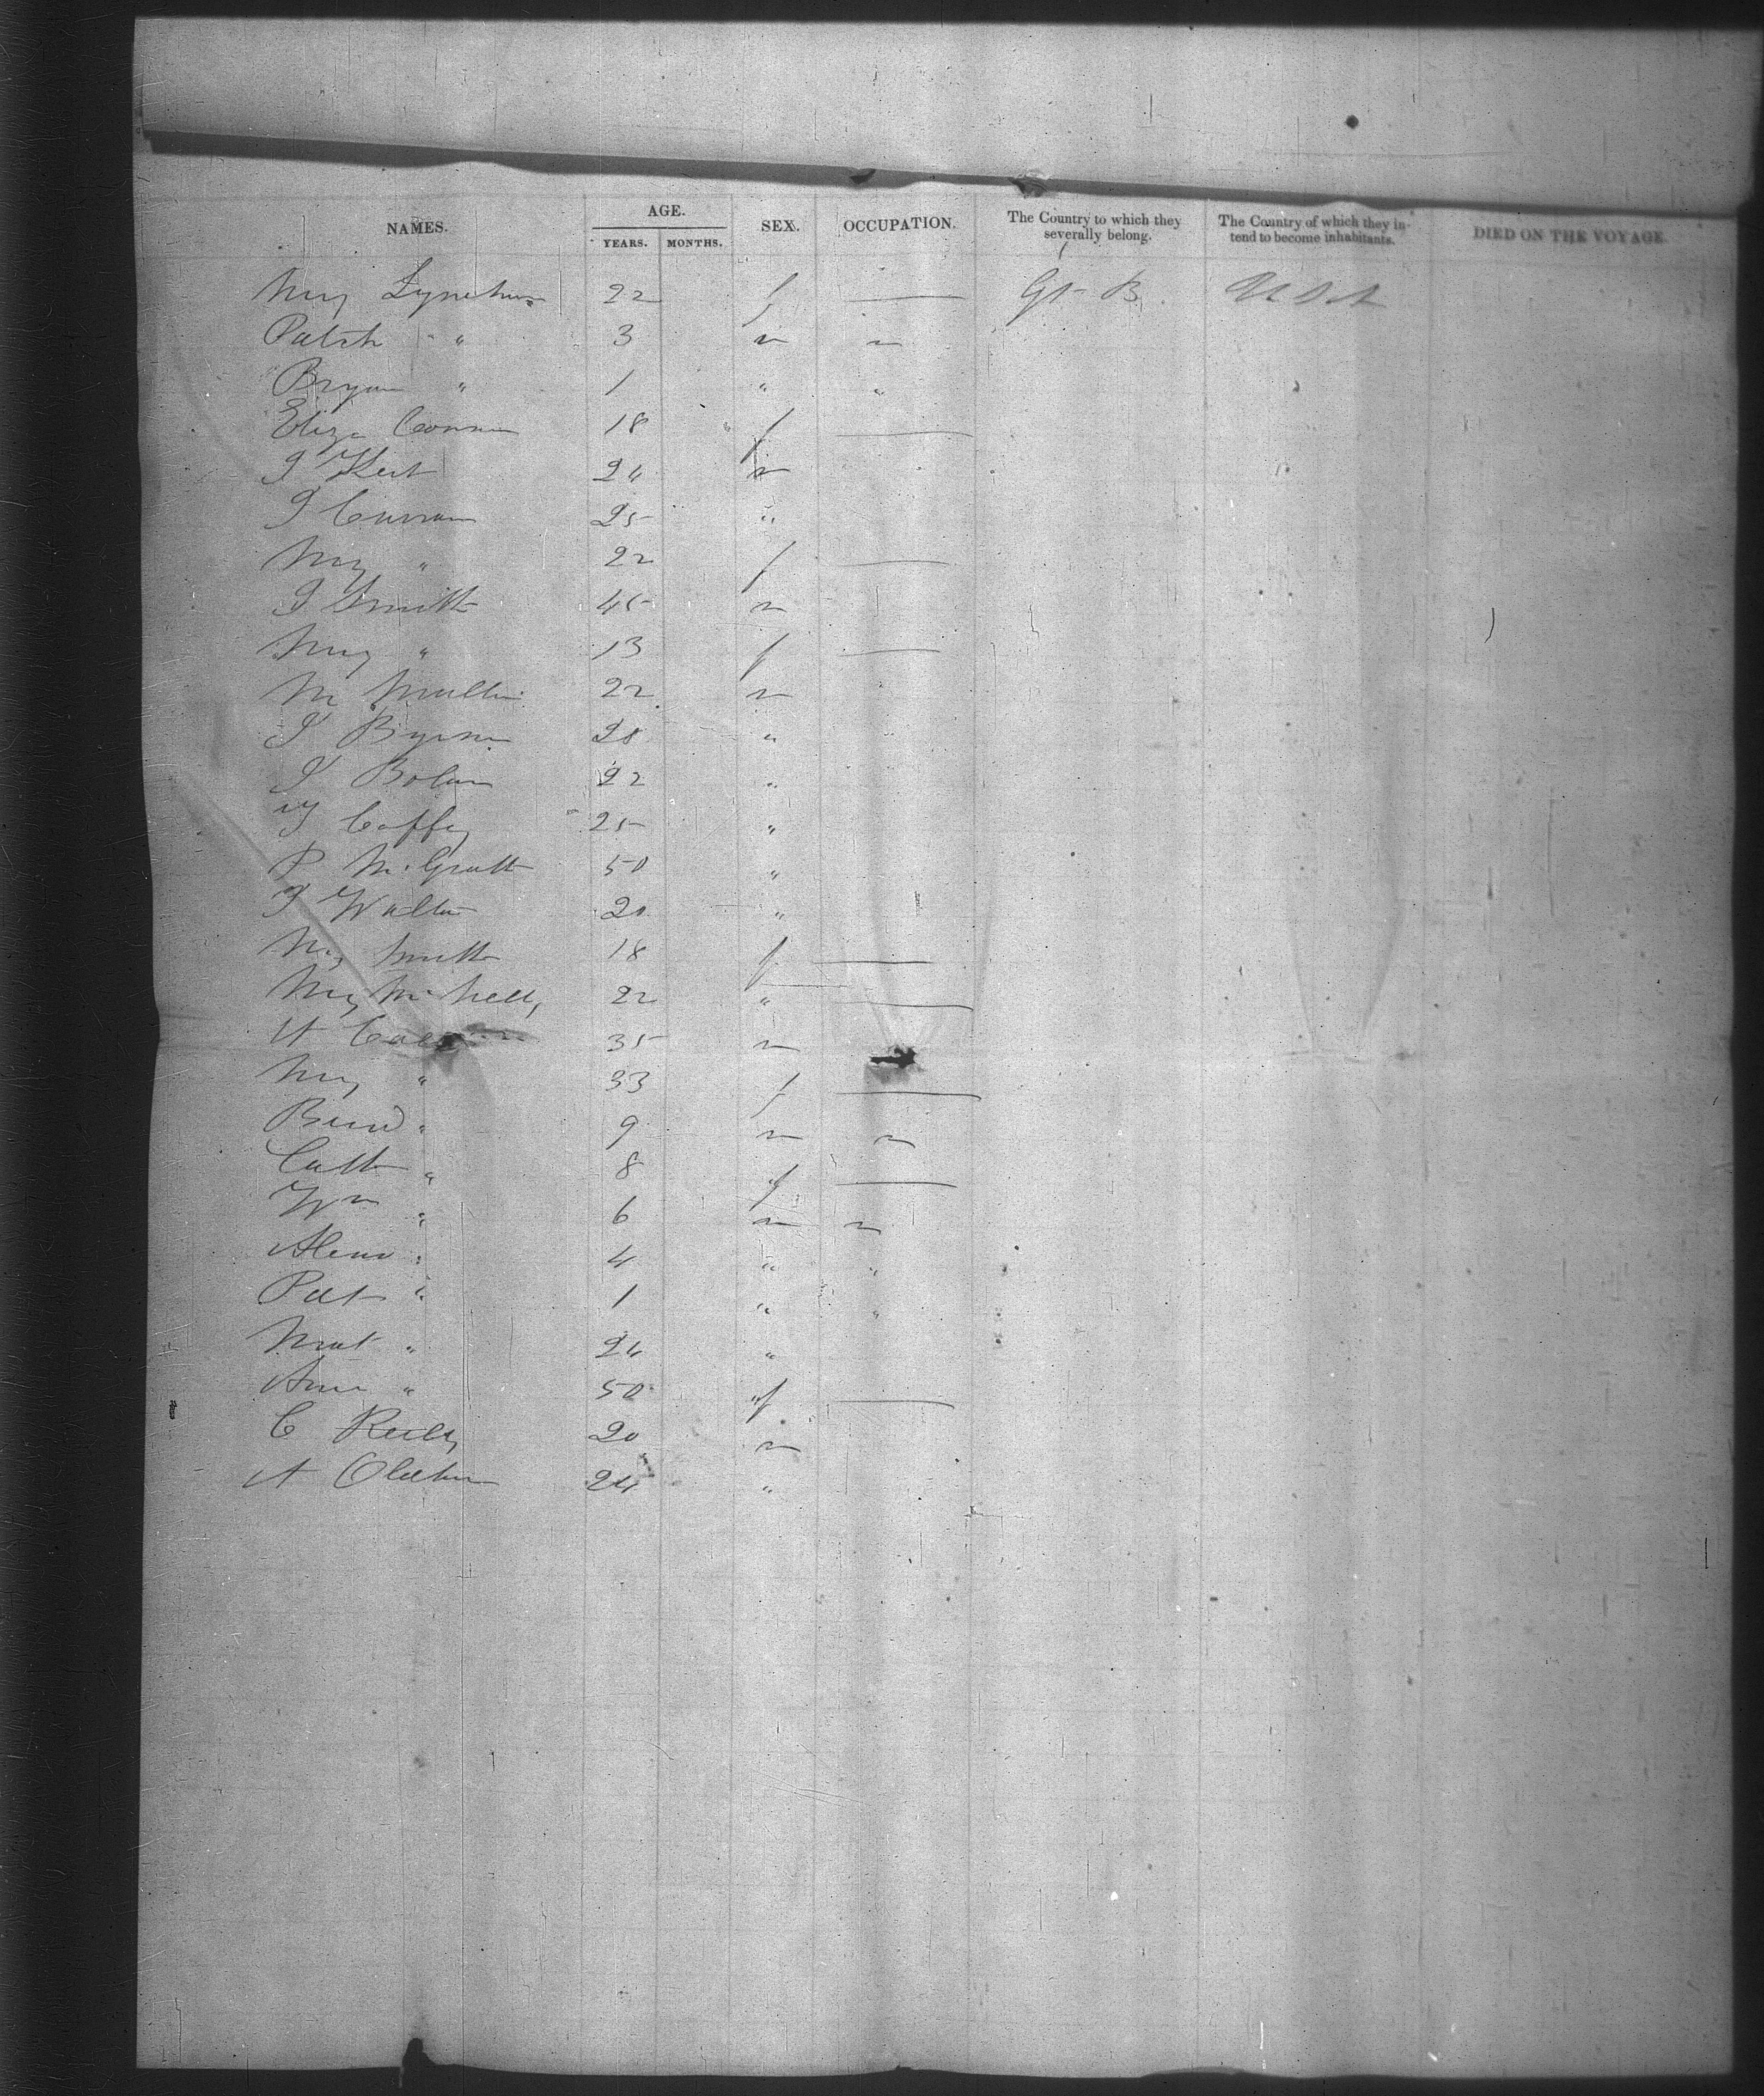 NAMES. AGE. YEARS. MONTHS. SEX. OCCUPATION. The Country to which they severally belong. The Country of which they intend to become inhabitants. DIED ON THE VOYAGE.
Mry 22 f — Gt B U S A
Patrk " 3 m
Bryan " 1 " "
Eliza 18 f —
J Kert 24 m
J Curran 25 "
Mry " 22 f —
J Smith 45 m
Mry " 13 f —
M Mullin 22 m
J Byrne 28 "
J Bolan 22 "
T Coffey 25 "
P McGrath 50 "
J Walter 20 "
Mry Smith 18 f —
Mry 22 " —
A 35 m
Mry " 33 f —
Bernd " 9 m
Cath " 8 f —
Wm " 6 m
Alexr " 4 " "
Pat " 1 " "
Mat " 24 "
Ann " 50 f —
C Reilly 20 m
A 24 "